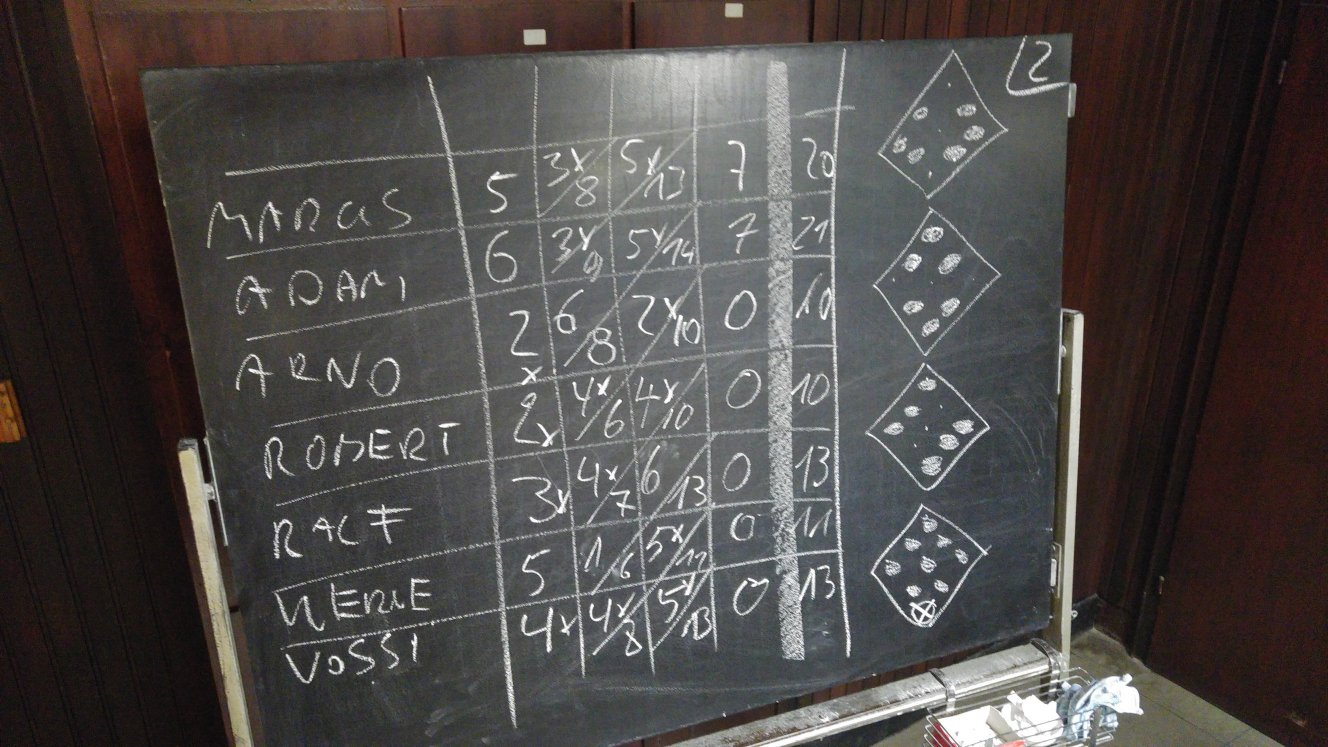 2
MARCUS 5 3x/8 5x/13 7 20
ADAM 6 3x/9 5x/14 7 21
ARNO 2x 6/8 2x/10 0 10
ROBERT 2x 4x/6 4x/10 0 10
RALF 3x 4x/7 6/13 0 13
5 1/6 5x/11 0 11
VOSSI 4x 4x/8 5x/13 0 13